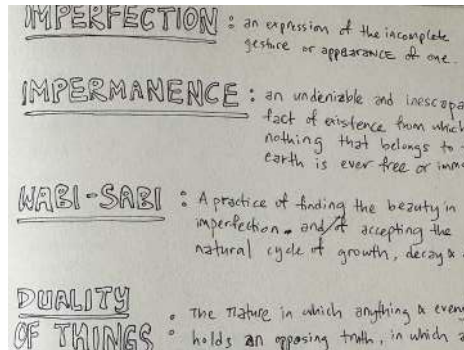 IMPERFECTION : an expression of the incomplete
gesture or appearance of one.
IMPERMANENCE : an undeniable and
fact of existence from which
nothing that belongs to
earth is ever free or
WABI-SABI : A practice of finding the beauty in
imperfection. and/of accepting the
natural cycle of growth, decay &
DUALITY
OF THINGS : The nature in which anything &
holds an opposing truth, in which